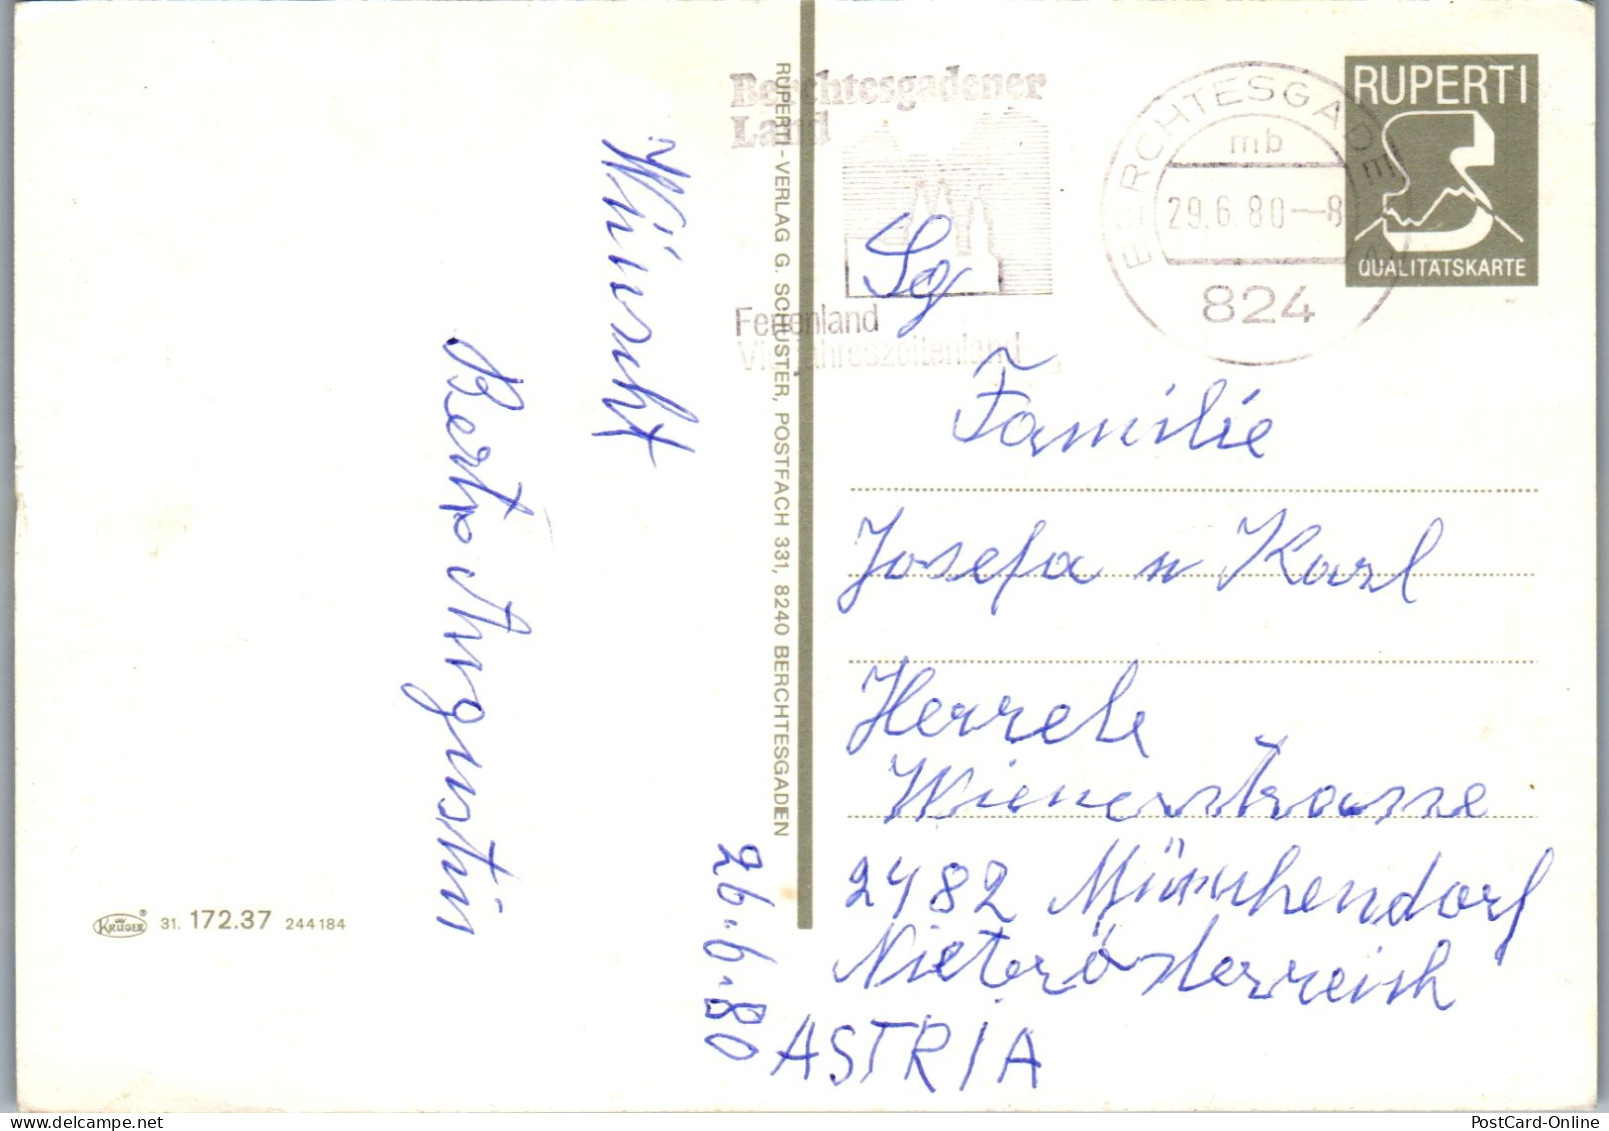 Wünscht
Berta Augustin
26.6.80
KRÜGER® 31. 172.37 244184
RUPERTI-VERLAG G. SCHUSTER, POSTFACH 331, 8240 BERCHTESGADEN
Berchtesgadener
Land
Ferienland
Vierjahreszeitenland
BERCHTESGADEN
mb
29.6.80-8
824
RUPERTI
QUALITÄTSKARTE
Sg
Familie
Josefa u Karl
Herrele
Wienerstrasse
2482 Münchendorf
Nieterösterreich
ASTRIA
PostCard-Online